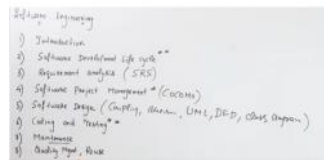 Software Engineering
1) Introduction
2) Software Development Life Cycle **
3) Requirement Analysis (SRS)
4) Software Project Management * (COCOMO)
5) Software Design (Coupling, UML, DFD, Class Diagram)
6) Coding and Testing **
7) Maintenance
8) Quality Mgmt, Reuse